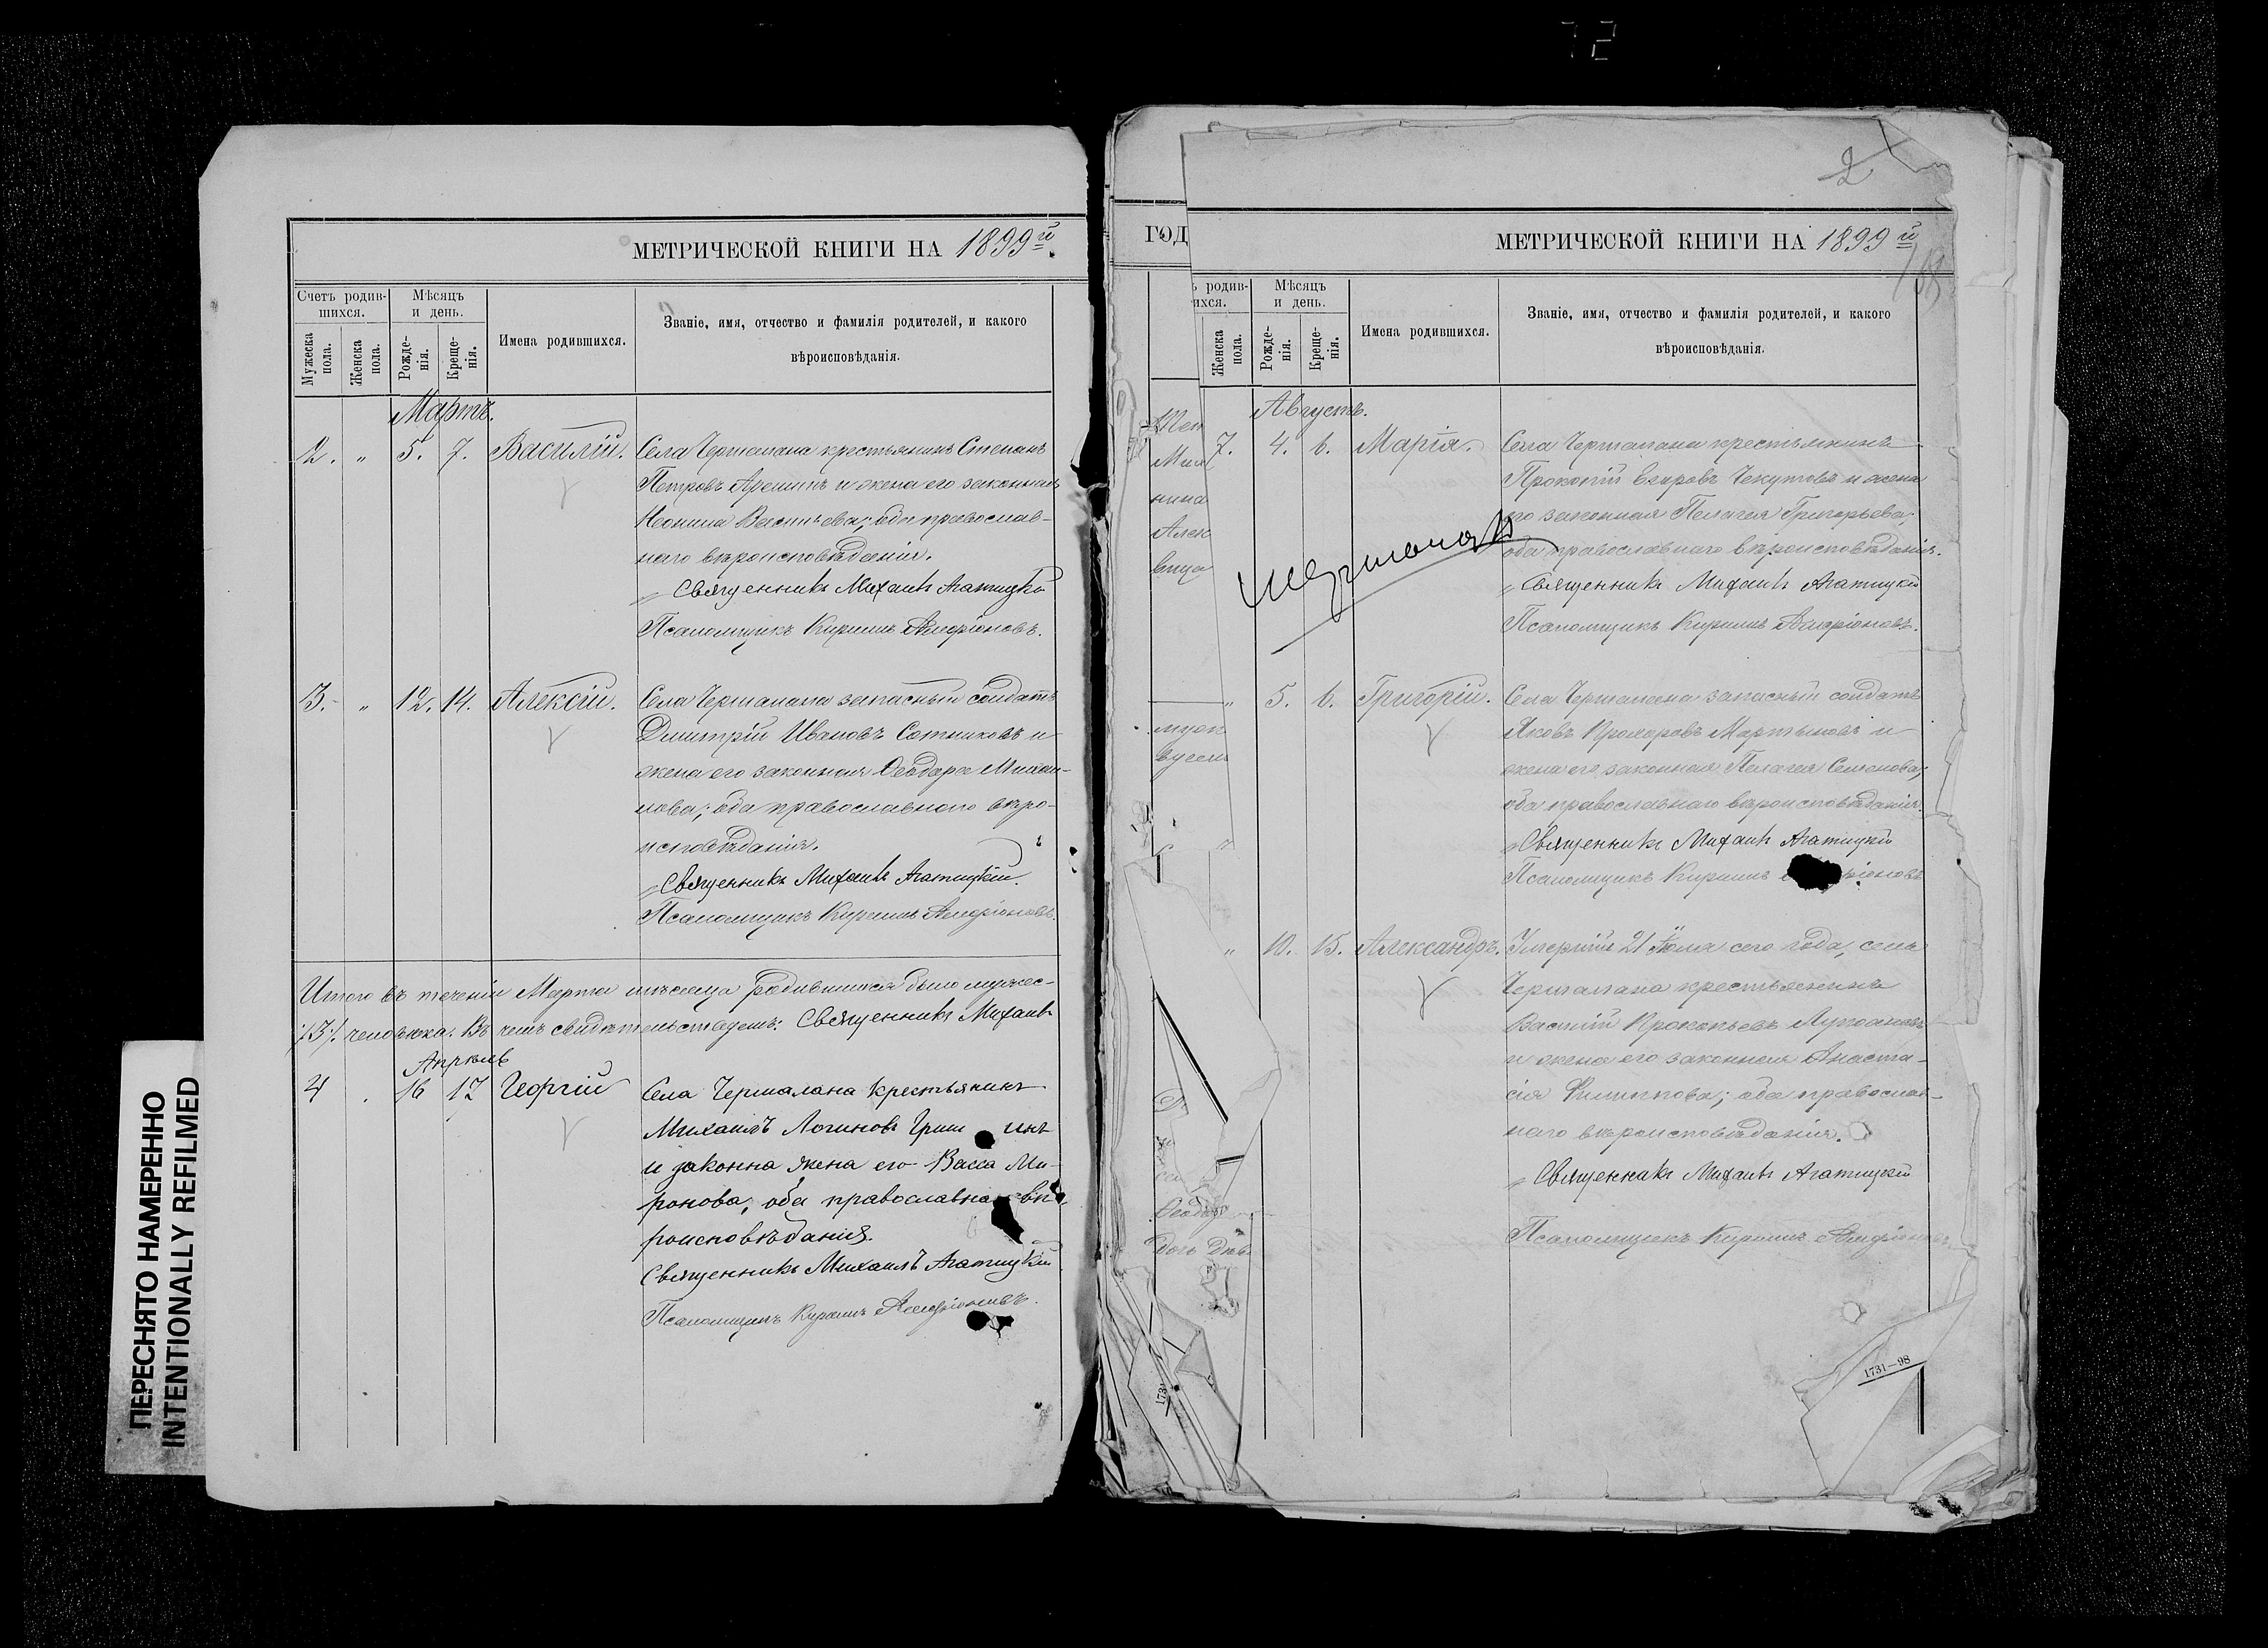 72
МЕТРИЧЕСКОЙ КНИГИ НА 1899й.
Счетъ родив-
шихся.
Мѣсяцъ
и день.
Мужеска
пола.
Женска
пола.
Рожде-
нія.
Креще-
нія.
Имена родившихся.
Званіе, имя, отчество и фамилія родителей, и какого
вѣроисповѣданія.
Мартъ.
2. " 5. 7. Василій. Села Чермалана крестьянинъ Степанъ
Петровъ и жена его законная
Васильева; оба православ-
наго вѣроисповѣданія.
Священникъ Михаилъ Агатицкій
Псаломщикъ Кириллъ
3. " 12. 14. Алексій. Села Чермалана запасный солдатъ
Димитрій Ивановъ Сотниковъ и
жена его законная Ѳеодора Михаи-
лова; оба православнаго вѣро-
исповѣданія.
Священникъ Михаилъ Агатицкій.
Псаломщикъ Кириллъ
Итого въ теченіи Марта мѣсяца родившихся было мужес-
/3/. человѣка. Въ чемъ свидѣтельствуемъ: Священникъ Михаилъ
Апрѣль
4 . 16 17 Георгій Села Чермалана крестьянинъ
Михаилъ Логиновъ
и законна жена его Васса Ми-
ронова, оба православна вѣ-
роисповѣданія.
Священникъ Михаилъ Агатицкій
Псаломщикъ Кириллъ
2
ГОД
МЕТРИЧЕСКОЙ КНИГИ НА 1899й
ъ родив-
ихся.
Мѣсяцъ
и день.
Женска
пола.
Рожде-
нія.
Креще-
нія.
Имена родившихся.
Званіе, имя, отчество и фамилія родителей, и какого
вѣроисповѣданія.
Августъ.
7. 4. 6. Марія. Села Чермалана крестьянинъ
Прокопій Чекутовъ и жена
его законная Пелагея Григорьева;
оба православнаго вѣроисповѣданія.
Священникъ Михаилъ Агатицкій
Псаломщикъ Кириллъ
" 5. 6. Григорій. Села Чермалана запасный солдатъ
Яковъ Прохоровъ Мартыновъ и
жена его законная Пелагея Семенова;
оба православнаго вѣроисповѣданія.
Священникъ Михаилъ Агатицкій
Псаломщикъ Кириллъ
" 10. 15. Александръ. Умершій 21 Іюля сего года, села
Чермалана крестьянинъ
Василій Прокопьевъ
и жена его законная Анаста-
сія Филиппова; оба православ-
наго вѣроисповѣданія.
Священникъ Михаилъ Агатицкій
Псаломщикъ Кириллъ
1731—98
ПЕРЕСНЯТО НАМЕРЕННО
INTENTIONALLY REFILMED